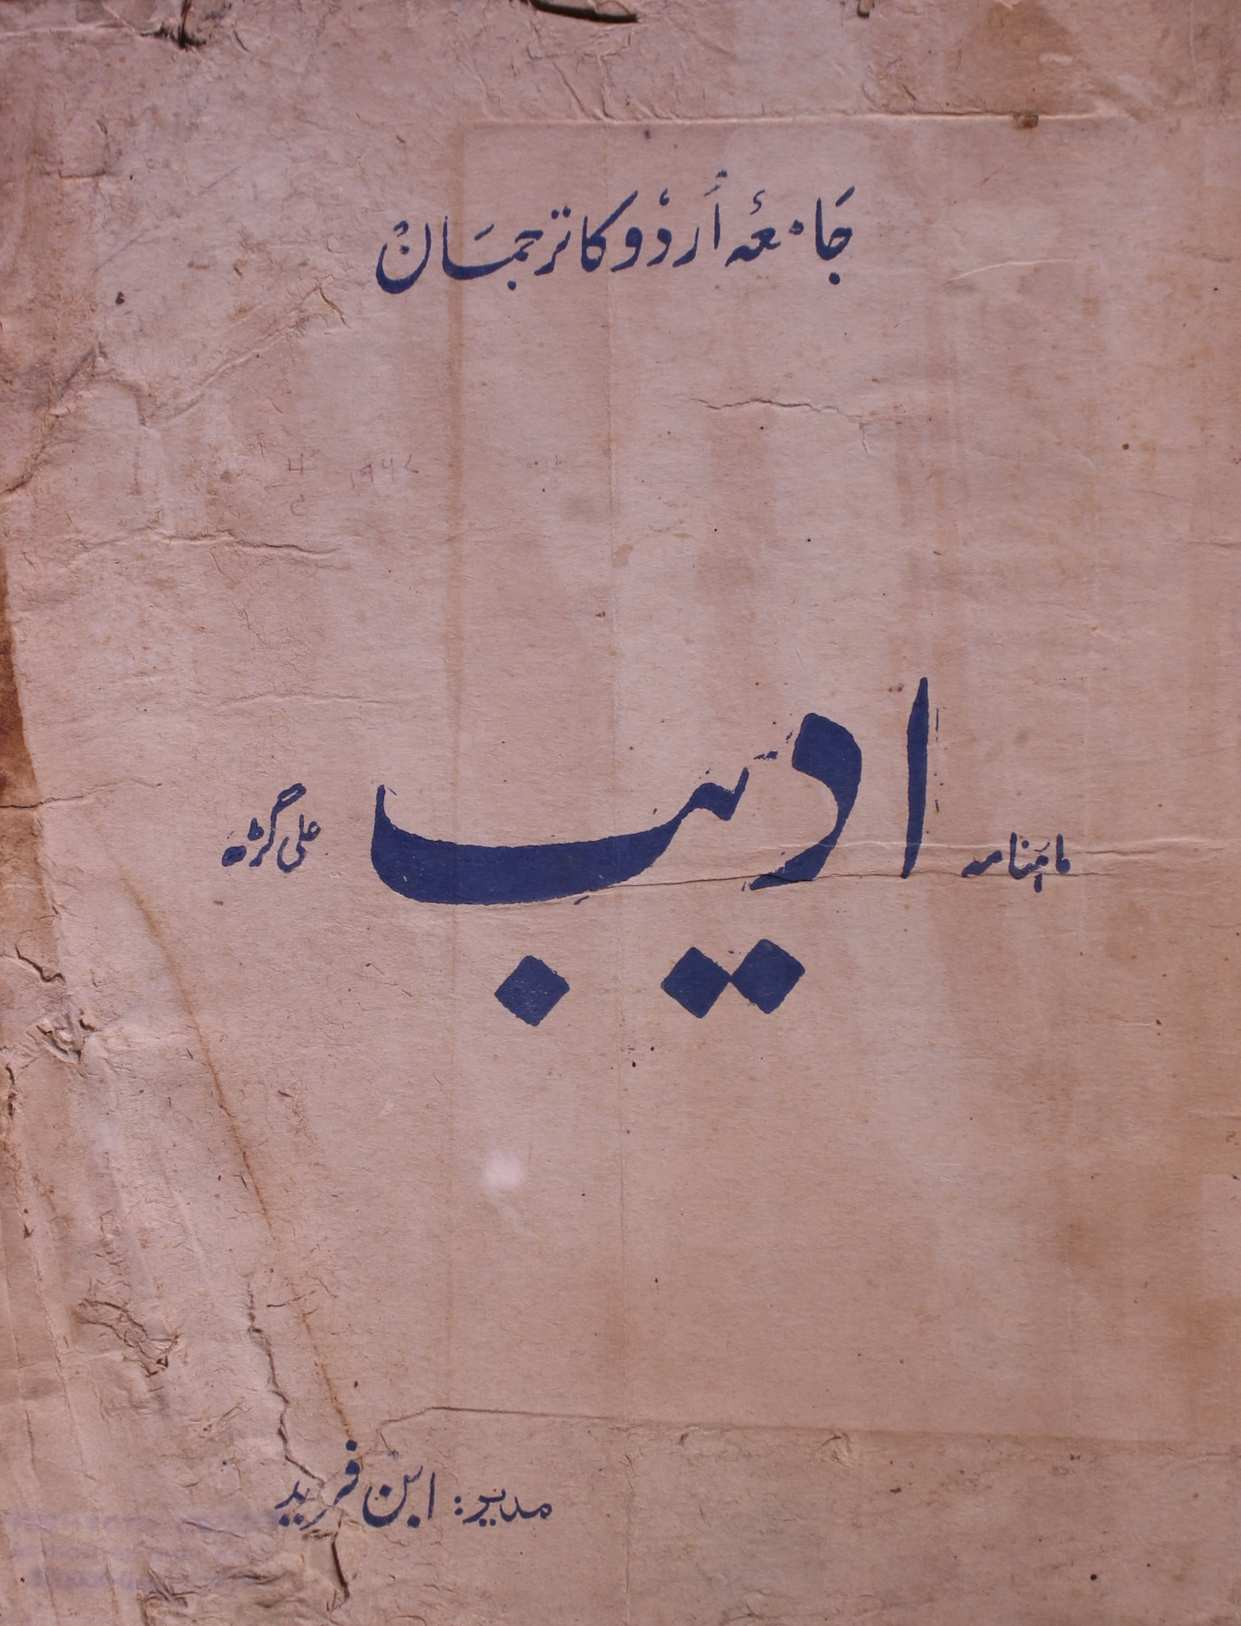 جامعہ اُردو کا ترجمان
ماہنامہ ادیب علی گڑھ
مدیر: ابن فرید